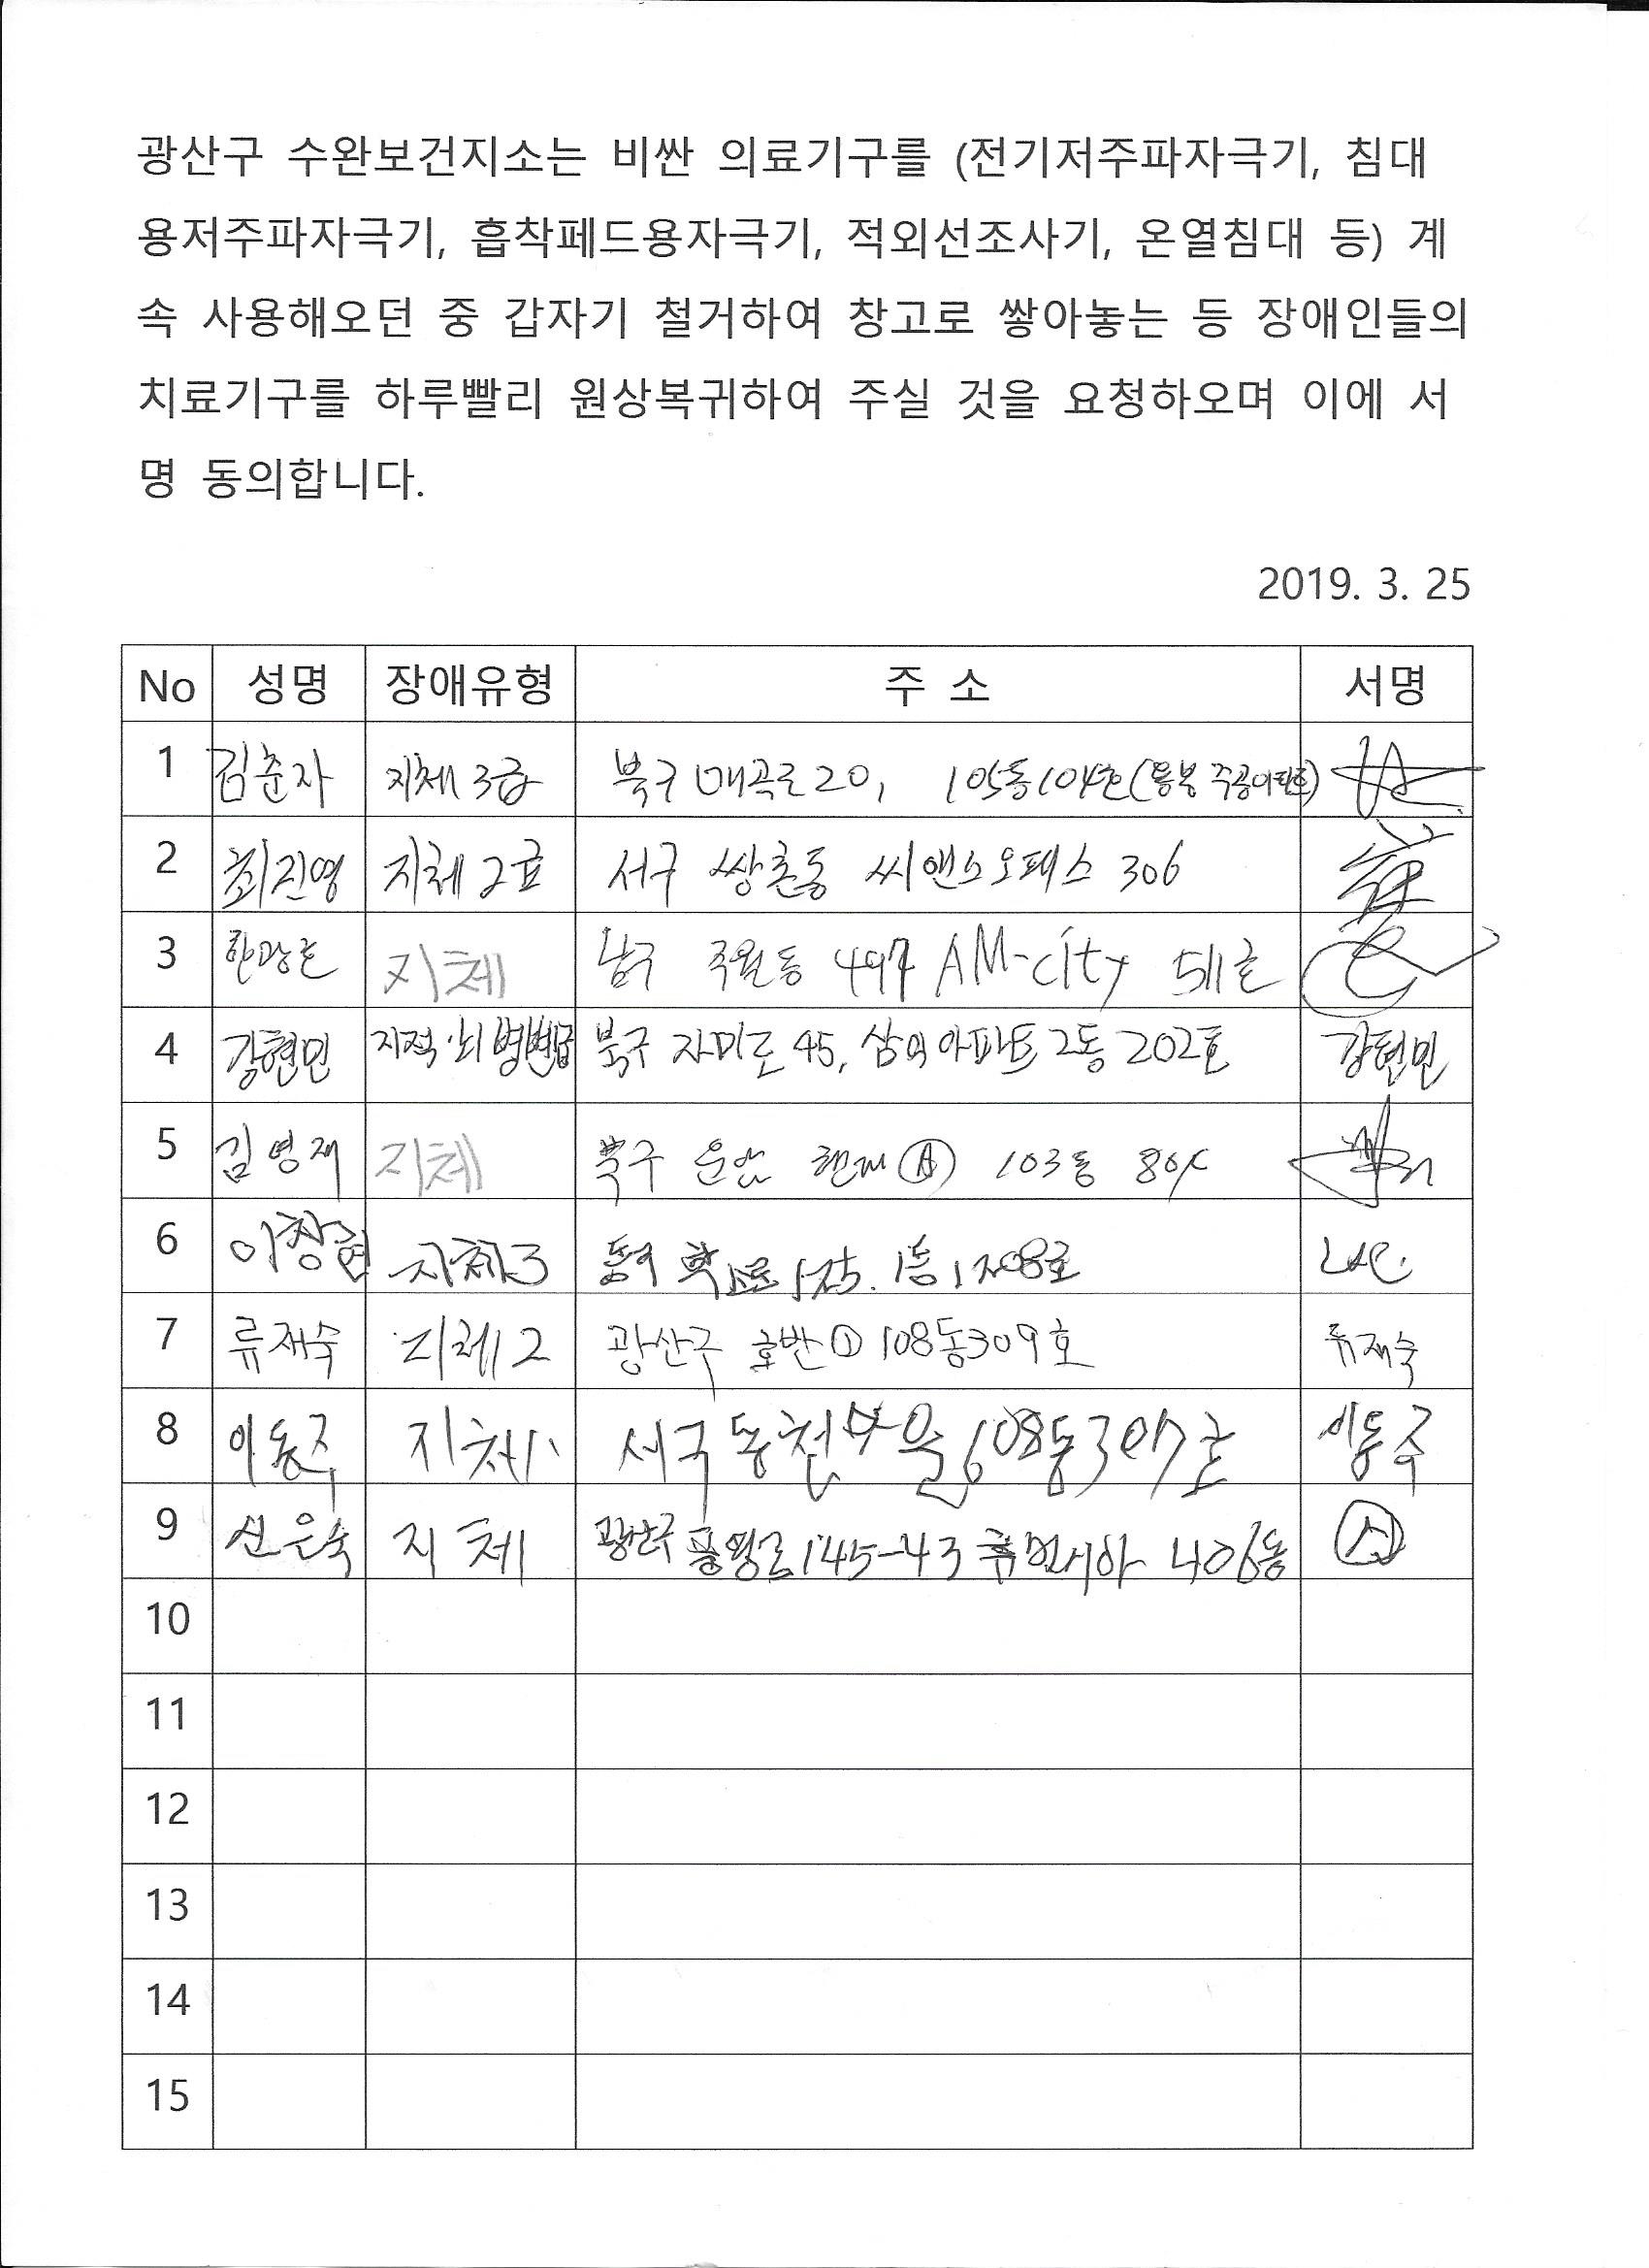 광산구 수완보건지소는 비싼 의료기구를 (전기저주파자극기, 침대
용저주파자극기, 흡착페드용자극기, 적외선조사기, 온열침대 등) 계
속 사용해오던 중 갑자기 철거하여 창고로 쌓아놓는 등 장애인들의
치료기구를 하루빨리 원상복귀하여 주실 것을 요청하오며 이에 서
명 동의합니다.
2019. 3. 25
No 성명 장애유형 주 소 서명
1 김춘자 지체 3급 북구 매곡로 20, 105동 104호
2 최진영 지체 2급 서구 쌍촌동 씨앤스오피스 306
3 지체 남구 주월동 497 AM-city 511호
4 강현민 지적·뇌병변 북구 자미로 45, 삼익아파트 2동 202호 강현민
5 김영재 지체 북구 운암 Ⓐ 103동
6 이창현 지체3 동구 1208호
7 류재숙 지체 2 광산구 호반① 108동 309호 류재숙
8 이동주 지체 서구 동천마을 608동 307호 이동주
9 신은숙 지체 광산구 풍영로 145-43 휴먼시아 406동 신
10
11
12
13
14
15